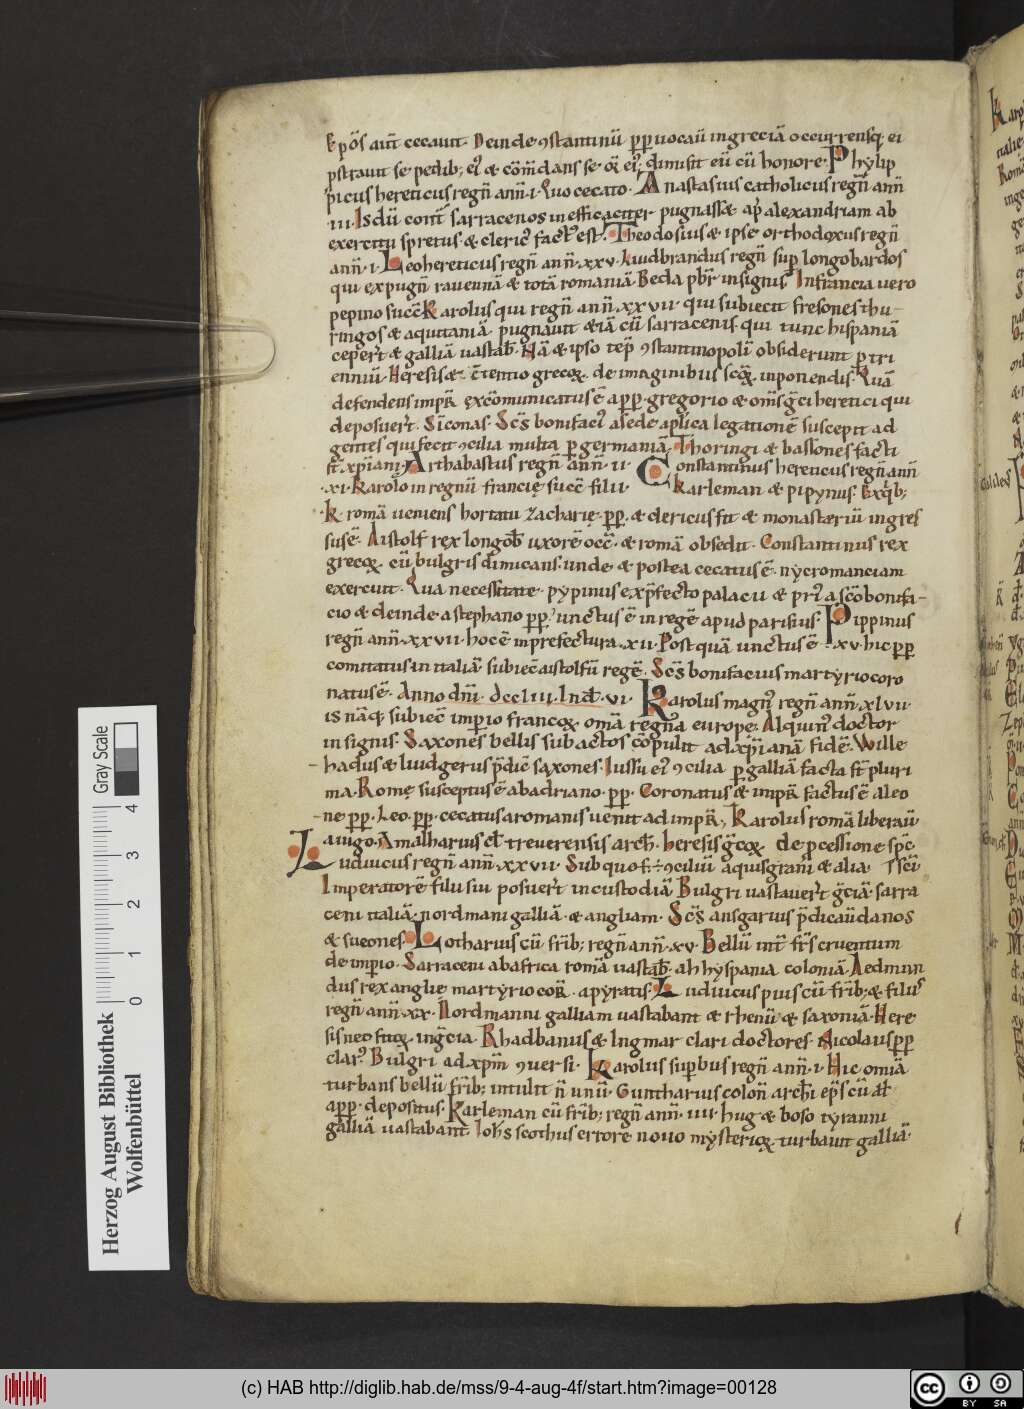 Ep̄os aut̄ cecauit. Deinde ꝯstantinū p̄p̄ uocaū in greciā occurrensq; ei
pstrauit se pedib; ei' & com̄dans se or̄ ei'; dimisit eū cū honore. Phylip
picus hereticus regn̄ ann̄. i. Quo cecato. Anastasius catholicus regn̄ ann̄
.iii. Isdū cont̄ sarracenos inefficaciter pugnass& ap̄ alexandriam ab
exercitu spretus & cleric' fact' est. Theodosius & ipse orthodoxus regn̄
ann̄. i. Leo hereticus regn̄ ann̄. xxv. Liudbrandus regn̄ sup longobardos
qui expugn̄ rauennā & totā romaniā. Beda pbr̄ insignis. In francia uero
pepino succ̄ Karolus qui regn̄ ann̄. xxvii. qui subiecit fresones thu
ringos & aquitaniā. pugnauit &iā cū sarracenis. qui tunc hispaniā
ceper̄t & galliā uastab̄. Nā & ipso tep̄ ꝯstantinopoli obsiderunt p tri
enniū. Heresis & c̄tentio grecoꝝ. de imaginibus scōꝝ. inponendis. Quā
defendens imp̄r excōmunicatus ē a p̄p̄. gregorio & om̄s ḡci heretici qui
deposuer̄t. Sīconas. Sc̄s bonifaci' a sede ap̄lica legationē suscepit ad
gentes qui fecit ꝯcilia multa p germaniā. Thoringi & bassones facti
st̄ xp̄iani. Arthabastus regn̄ ann̄. ii. Constantinus hereticus regn̄ ann̄
.xi. Karolo in regnū francię succ̄ filii. Karleman & pipynus. Exq̄b;
.K. romā ueniens hortatu Zacharię. p̄p̄. & clericus fit & monasteriū ingres
sus ē. Aistolf rex longob̄ uxorē occ̄. & romā obsedit. Constantinus rex
grecoꝝ. cū bulgris dimicans. unde & postea cecatus ē. nycromanciam
exercuit. Qua necessitate. pypinus ex p̄fecto palacii & pri' a scō bonifa
cio & deinde a stephano p̄p̄. unctus ē in regē apud parisius. Pippinus
regn̄ ann̄. xxvii. hoc ē in prefectura. xii. Postquā unctus ē. xv. hic p̄p̄
comitatus in italiā subiec̄ aistolfū regē. Sc̄s bonifacius martyrio coro
natus ē. Anno dn̄i. dccliii. Ind̄. vi. Karolus magn' regn̄ ann̄. xlvii.
is nāq; subiec̄ imperio francoꝝ. omā regna europe. Alquin' doctor
insignis. Saxones bellis subactos cōpulit ad xp̄ianā fidē. Wille
hadus & liudgerus p̄dic̄ saxones. Iussu ei' ꝯcilia p galliā facta st̄ pluri
ma. Romę susceptus ē ab adriano. p̄p̄. Coronatus & imp̄r factus ē a leo
ne p̄p̄. Leo. p̄p̄. cecatus a romanis uenit ad imp̄r., Karolus romā liberaū
a iugo. Amalharius ēt treuerensis arch̄. heresis ḡcoꝝ de pcessione sp̄c
Luduicus regn̄ ann̄. xxvii. Sub quo f. ÷ ꝯciliū aquisgrani & alia.
Imperatorē filii sui posuer̄t in custodiā. Bulgri uastauer̄t ḡciā. sarra
ceni italiā. nordmani galliā. & angliam. Sc̄s ansgarius p̄dicaū danos
& sueones. Lotharius cū frīb; regn̄ ann̄. xv. Bellū int̄ fr̄s cruentum
de imp̄io. Sarraceni ab africa romā uastab̄. ab hyspania coloniā. Aedmun
dus rex anglie martyrio cor̄. a pyratis. Luduicus pius cū frīb; & filiis
regn̄ ann̄. xx. Nordmanni galliam uastabant & rhenū & saxoniā. Here
sis neofitoꝝ. in ḡcia. Rhadbanus & Ingmar clari doctores. Nicolaus p̄p̄
clar'. Bulgri ad xpm̄ ꝯuersi. Karolus supbus regn̄ ann̄. i. Hic omiā
turbans bellū frīb; intulit n̄ unū. Guntharius colon̄ archi ep̄s cū at̄
a p̄p̄. depositus. Karleman cū frīb; regn̄ ann̄. iii. hug & boso tyranni
galliā uastabant. Ioh̄s scothus errore nouo mysterioꝝ. turbauit galliā.
Herzog August Bibliothek
Wolfenbüttel
Gray Scale
0 1 2 3 4
(c) HAB http://diglib.hab.de/mss/9-4-aug-4f/start.htm?image=00128
cc BY SA